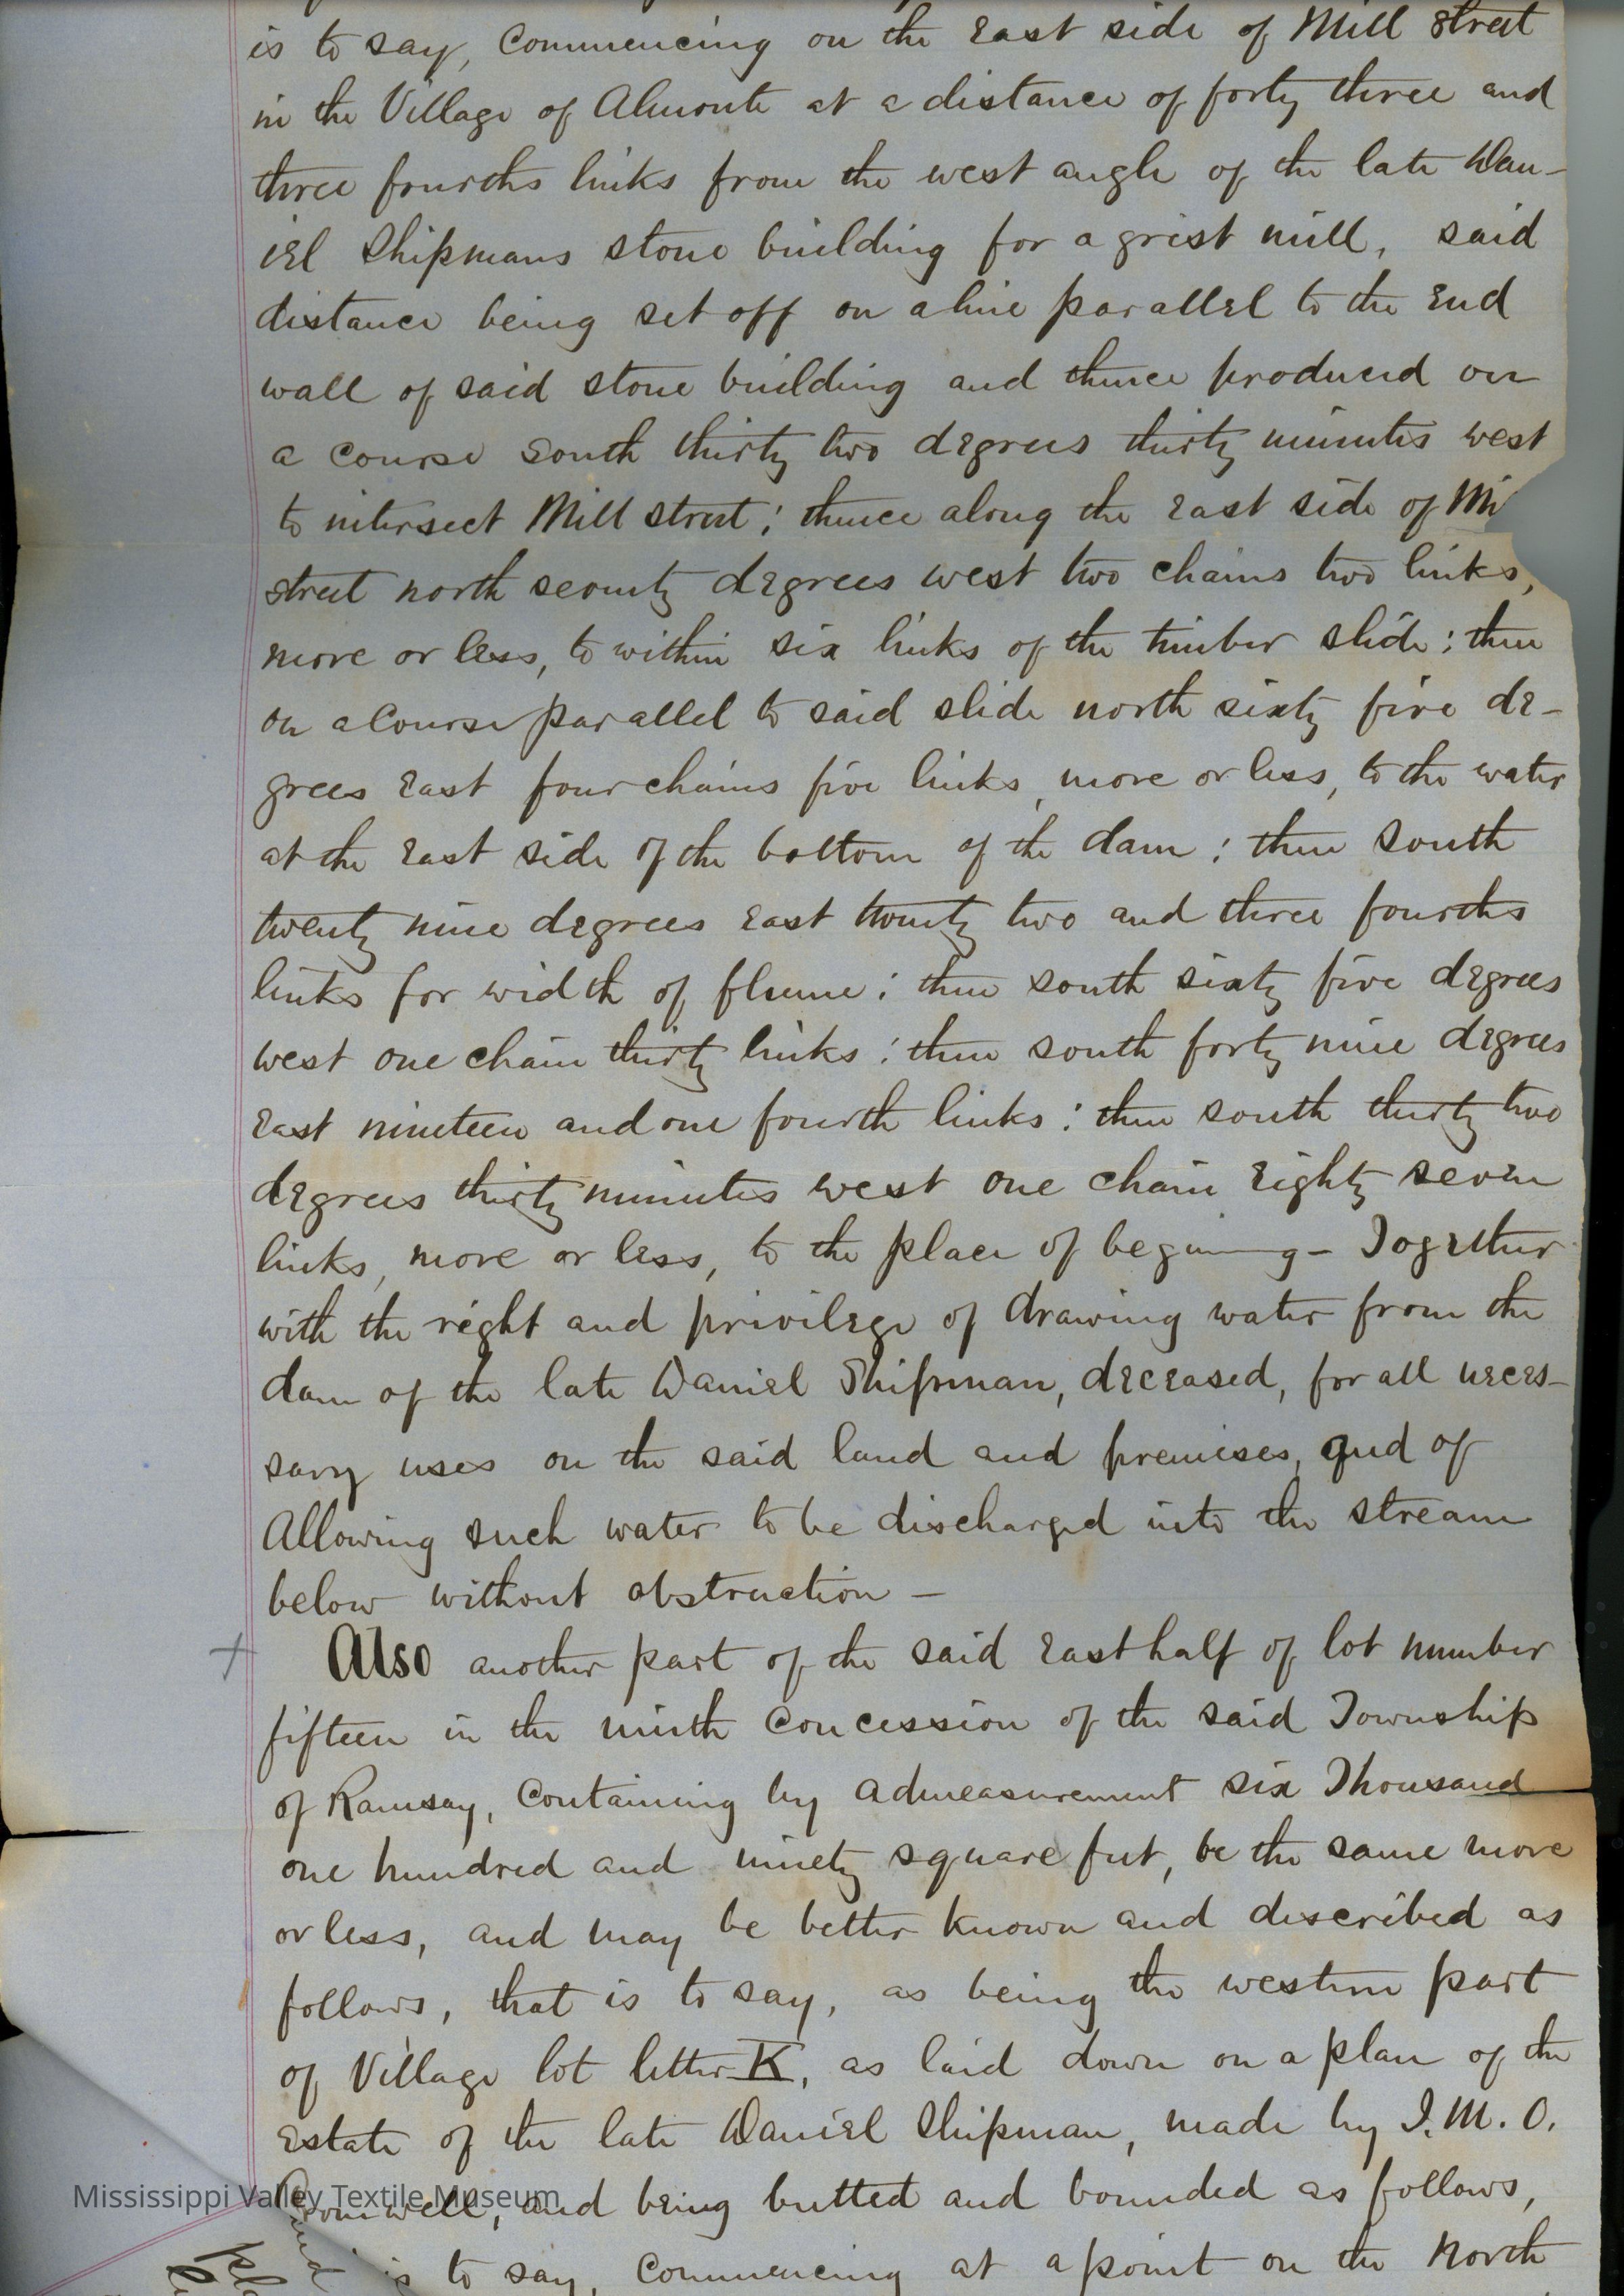 is to say, Commencing on the East side of Mill Street
in the Village of Almonte at a distance of forty three and
three fourths links from the west angle of the late Dan-
iel Shipmans stone building for a grist mill, said
distance being set off on a line parallel to the End
wall of said stone building and thence produced on
a course South thirty two degrees thirty minutes west
to intersect Mill street; thence along the East side of Mi
street north seventy degrees west two chains two links,
more or less, to within six links of the timber slide; then
on a Course parallel to said slide north sixty five de-
grees East four chains five links, more or less, to the water
at the East side of the bottom of the dam; then South
twenty nine degrees East twenty two and three fourths
links for width of flume; then south sixty five degrees
west one chain thirty links; then south forty nine degrees
East nineteen and one fourth links; then south thirty two
degrees thirty minutes west one chain Eighty seven
links, more or less, to the place of beginning - Together
with the right and privilege of drawing water from the
dam of the late Daniel Shipman, deceased, for all neces-
sary uses on the said land and premises, and of
Allowing such water to be discharged into the stream
below without obstruction -
+ Also another part of the said East half of lot number
fifteen in the ninth Concession of the said Township
of Ramsay, Containing by admeasurement six Thousand
one hundred and ninety square feet, be the same more
or less, and may be better known and described as
follows, that is to say, as being the western part
of Village lot letter K, as laid down on a plan of the
Estate of the late Daniel Shipman, made by J. M. O.
Cromwell, and being butted and bounded as follows,
is to say, Commencing at a point on the North
Mississippi Valley Textile Museum